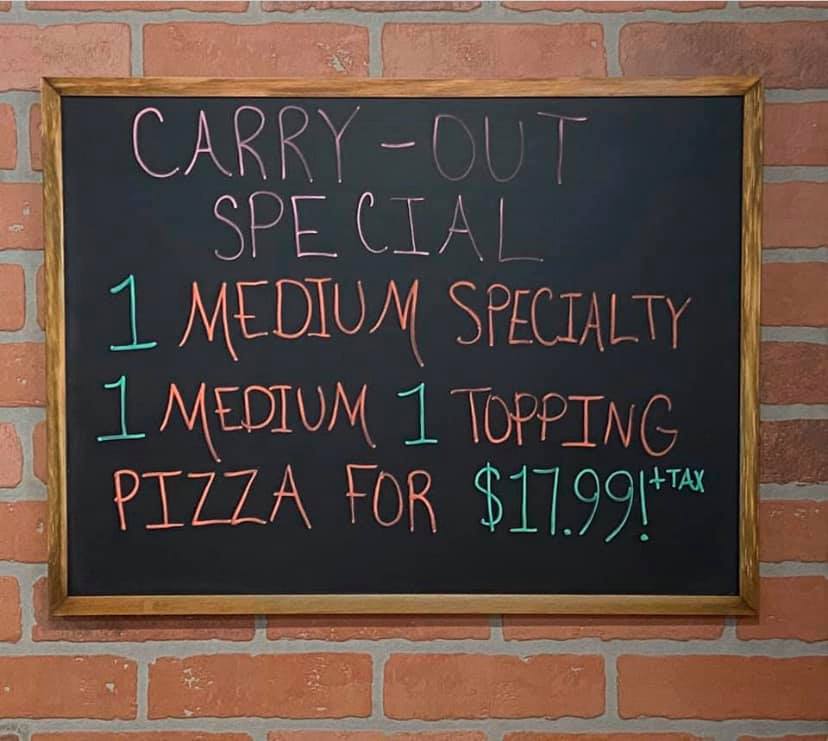 CARRY-OUT
SPECIAL
1 MEDIUM SPECIALTY
1 MEDIUM 1 TOPPING
PIZZA FOR $17.99! +TAX